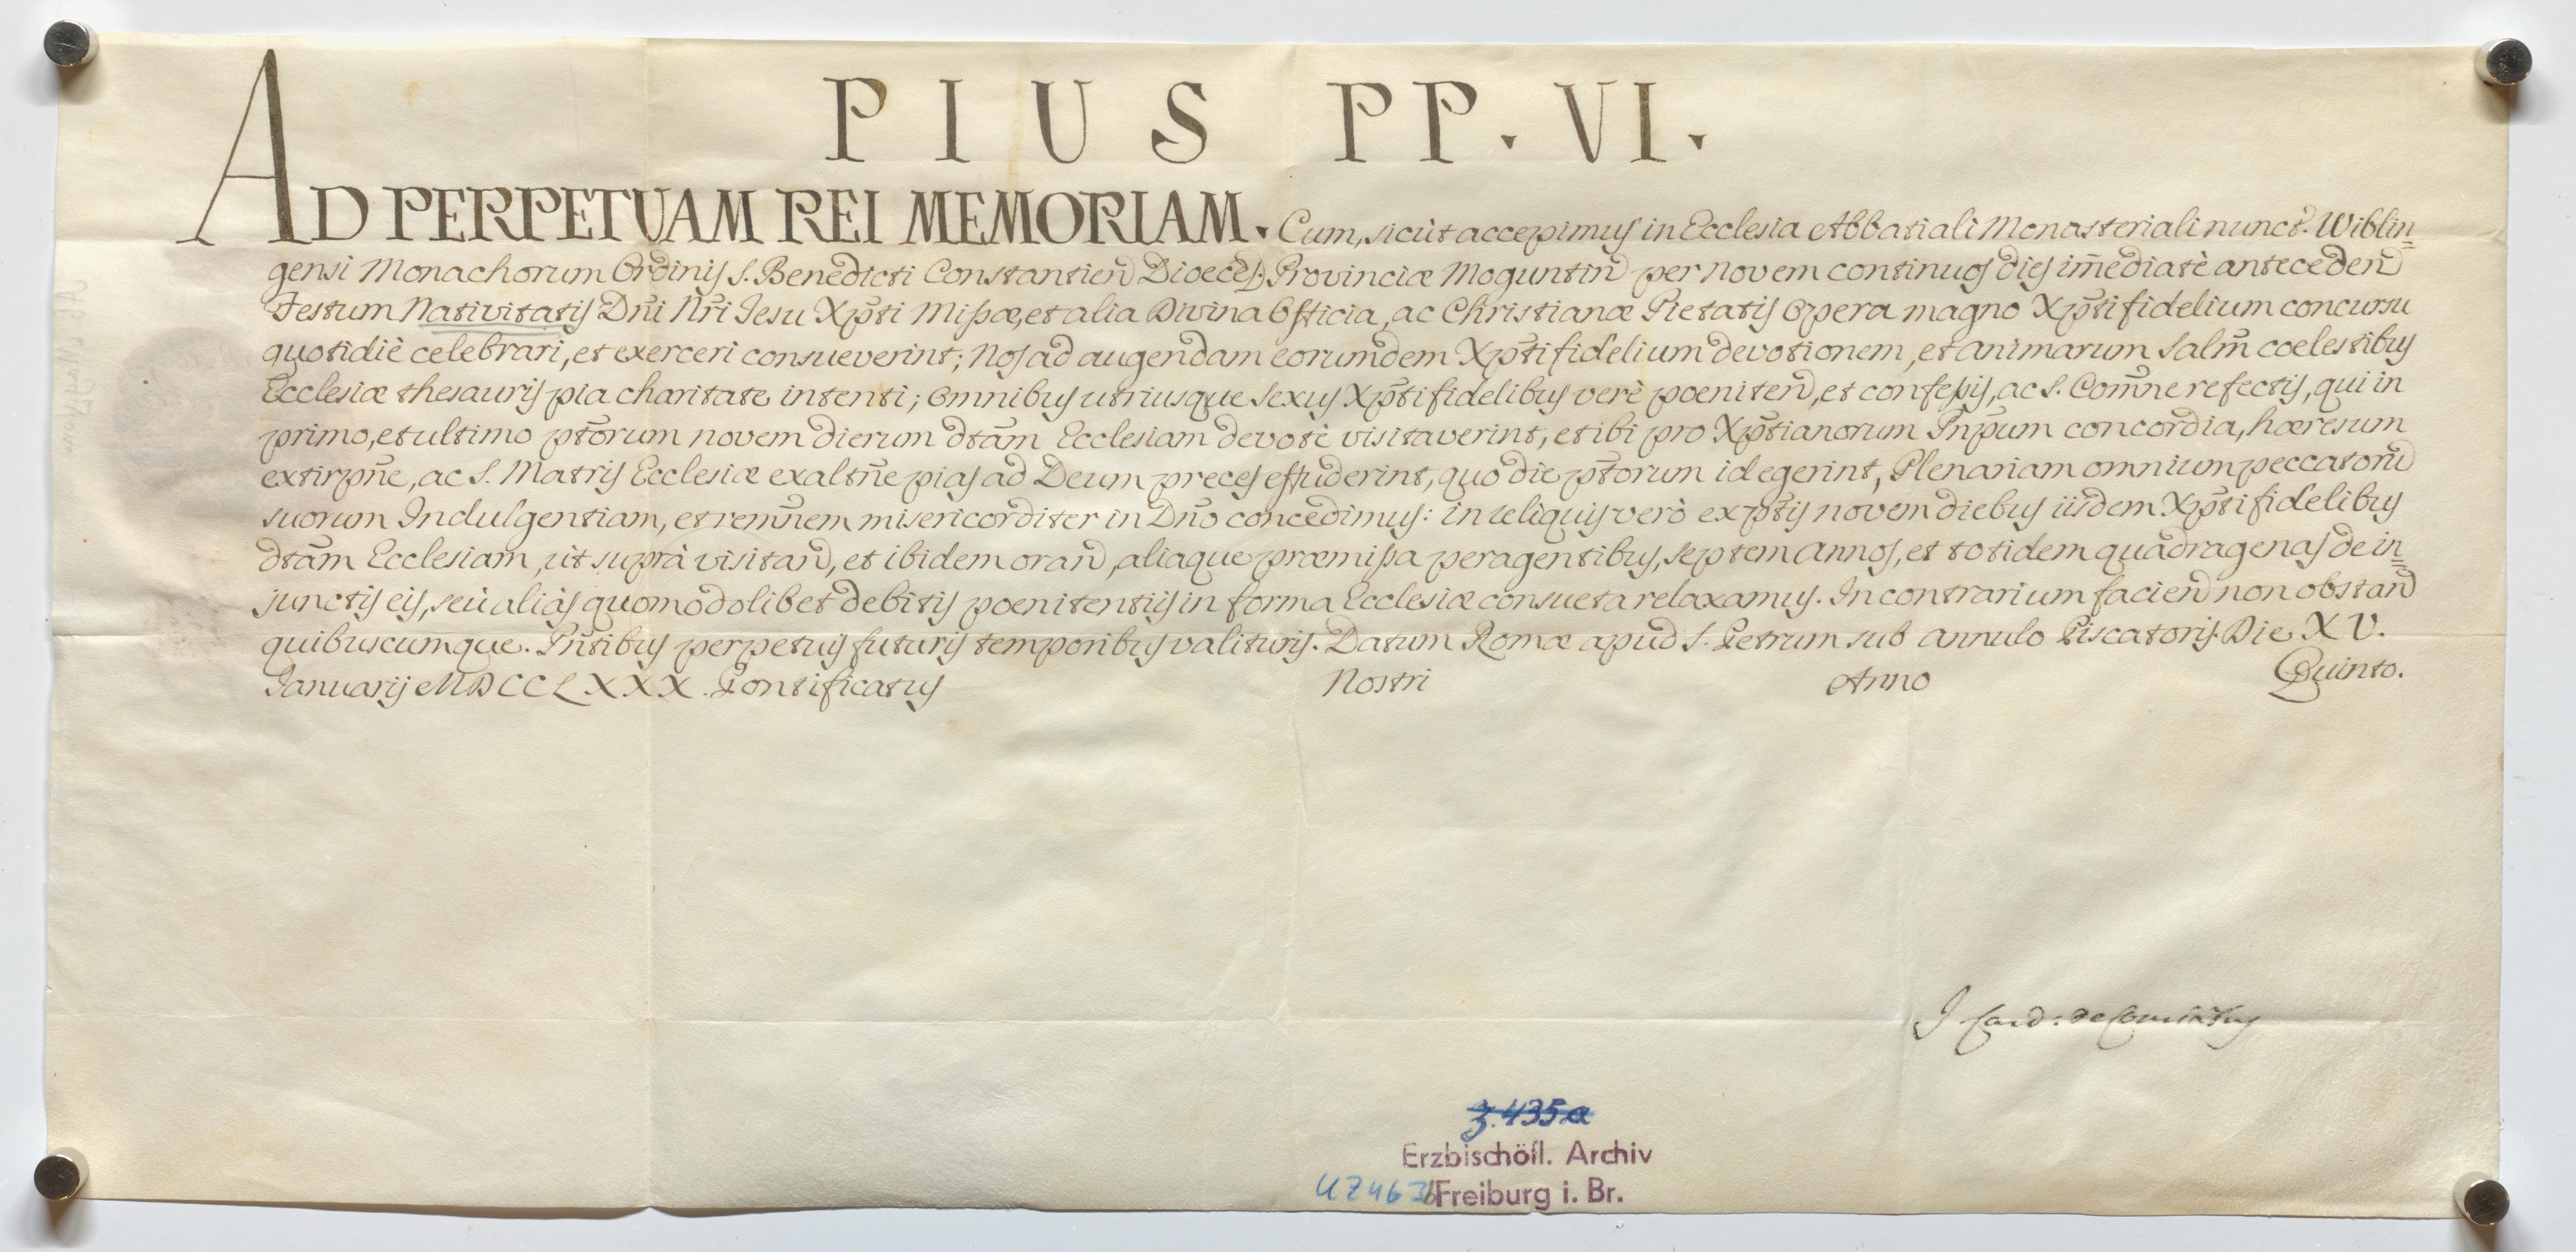 PIUS PP. VI.
AD PERPETUAM REI MEMORIAM. Cum, sicùt accepimus in Ecclesia Abbatiali Monasteriali nunct. Wiblin=
gensi Monachorum Ordinis S. Benedicti Constantien̄ Dioeces. Provinciæ Moguntin̄ per novem continuos dies im̄ediatè anteceden̄
Festum Nativitatis Dn̄i Nr̄i Jesu Xp̄ti Missæ, et alia Divina Officia, ac Christianæ Pietatis Opera magno Xp̄tifidelium concursu
quotidiè celebrari, et exerceri consueverint; Nos ad augendam eorumdem Xp̄tifidelium devotionem, et animarum salm̄ coelestibus
Ecclesiæ thesauris pia charitate intenti; Omnibus utriusque sexus Xp̄tifidelibus verè poeniten̄, et confessis, ac S. Com̄ne refectis, qui in
primo, et ultimo pt̄orum novem dierum dt̄am Ecclesiam devotè visitaverint, et ibi pro Xp̄tianorum Pn̄pum concordia, hæresum
extirpn̄e, ac S. Matris Ecclesiæ exaltn̄e pias ad Deum preces effuderint, quo die pt̄orum id egerint, Plenariam omnium peccatorū
suorum Indulgentiam, et remn̄em misericorditer in Dn̄o concedimus: in reliquis verò ex pt̄is novem diebus iisdem Xp̄tifidelibus
dt̄am Ecclesiam, ùt suprà visitan̄, et ibidem oran̄, aliaque præmissa peragentibus, septem annos, et totidem quadragenas de in=
junctis eis, seù aliàs quomodolibet debitis poenitentiis in forma Ecclesiæ consueta relaxamus. In contrarium facien̄ non obstan̄
quibuscumque. Pn̄tibus perpetuis futuris temporibus valituris. Datum Romæ apud S. Petrum sub Annulo Piscatoris. Die XV.
Januarij MDCCLXXX. Pontificatus Nostri Anno Quinto.
J. Card: de Comitibus
3.435a
Erzbischöfl. Archiv
Freiburg i. Br.